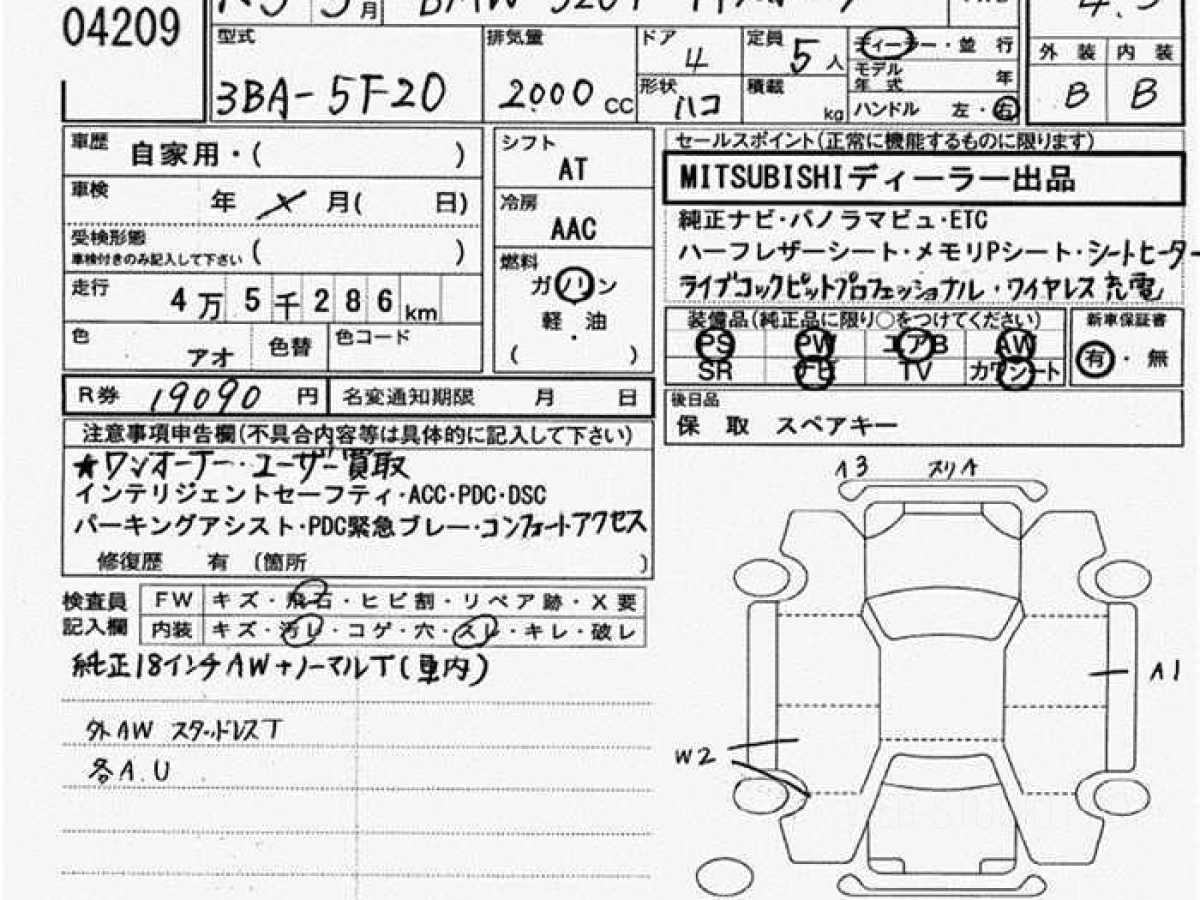 04209
R3 3月 BMW 320i
4.5
型式 3BA-5F20
排気量 2000 CC
ドア 4
定員 5人
ディーラー・並行
形状 ハコ
積載 kg
モデル年式 年
ハンドル 左・右
外装 内装
B B
車歴 自家用・( )
車検 年 X 月( 日)
受検形態 ( )
車検付きのみ記入して下さい
走行 4万5千286km
色 アオ 色替 色コード
シフト
AT
冷房
AAC
燃料
ガソリン
軽油
・
( )
セールスポイント(正常に機能するものに限ります)
MITSUBISHIディーラー出品
純正ナビ・パノラマビュ・ETC
ハーフレザーシート・メモリPシート・シートヒーター
ライブコックピットプロフェッショナル・ワイヤレス充電
装備品(純正品に限り○をつけてください)
PS PW エアB AW
SR ナビ TV カワシート
新車保証書
有・無
R券 19090 円 名変通知期限 月 日
後日品
保 取 スペアキー
注意事項申告欄(不具合内容等は具体的に記入して下さい)
★ワンオーナー・ユーザー買取
インテリジェントセーフティ・ACC・PDC・DSC
パーキングアシスト・PDC緊急ブレー・コンフォートアクセス
修復歴 有 (箇所 )
検査員記入欄
FW キズ・飛石・ヒビ割・リペア跡・X要
内装 キズ・汚レ・コゲ・穴・スレ・キレ・破レ
純正18インチAW+ノーマルT(車内)
外AW スタッドレスT
各A.U
A3 スリA
A1
W2